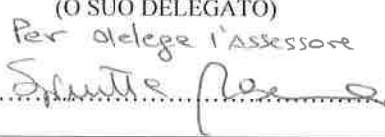 (O SUO DELEGATO)
Per delega l'Assessore